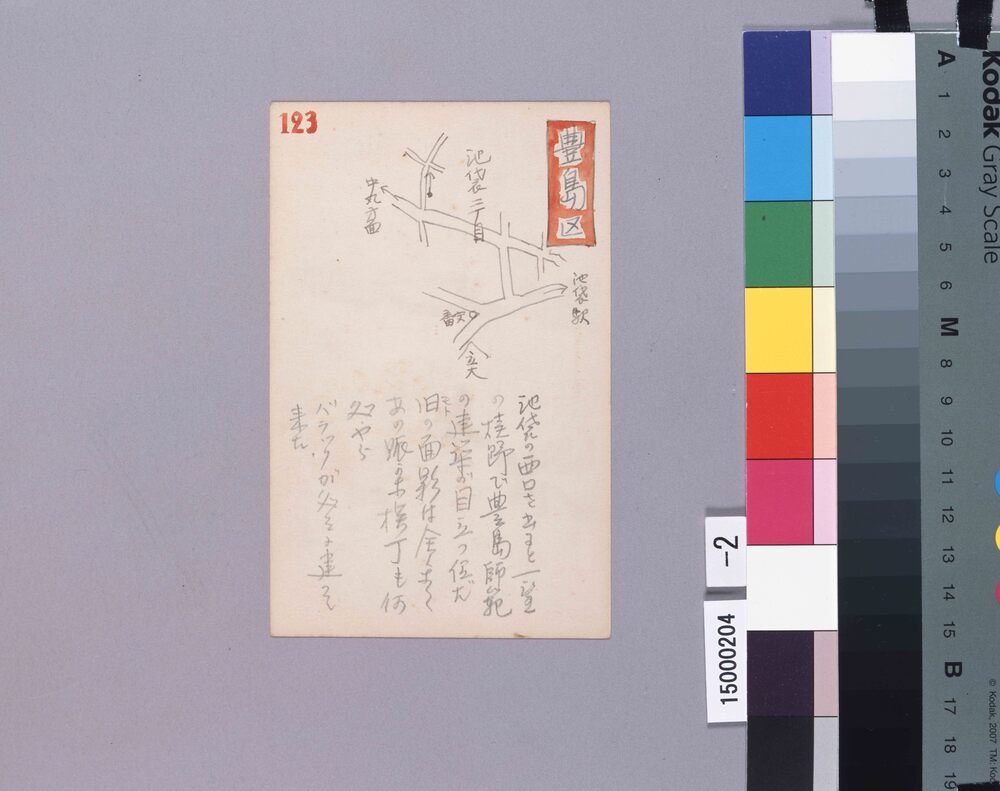 123
豊島区
池袋二丁目
中丸方面
池袋駅
立大
池袋の西口を出ると一望
の焼野で豊島師範
の建築が目立つ位だ
旧の面影は全く
あの賑 横丁も何
処やら
バラックが 建って
来た
-2
15000204
Kodak Gray Scale
A 1 2 3 4 5 6 M 8 9 10 11 12 13 14 15 B 17 18 19
© Kodak, 2007 TM: Kodak